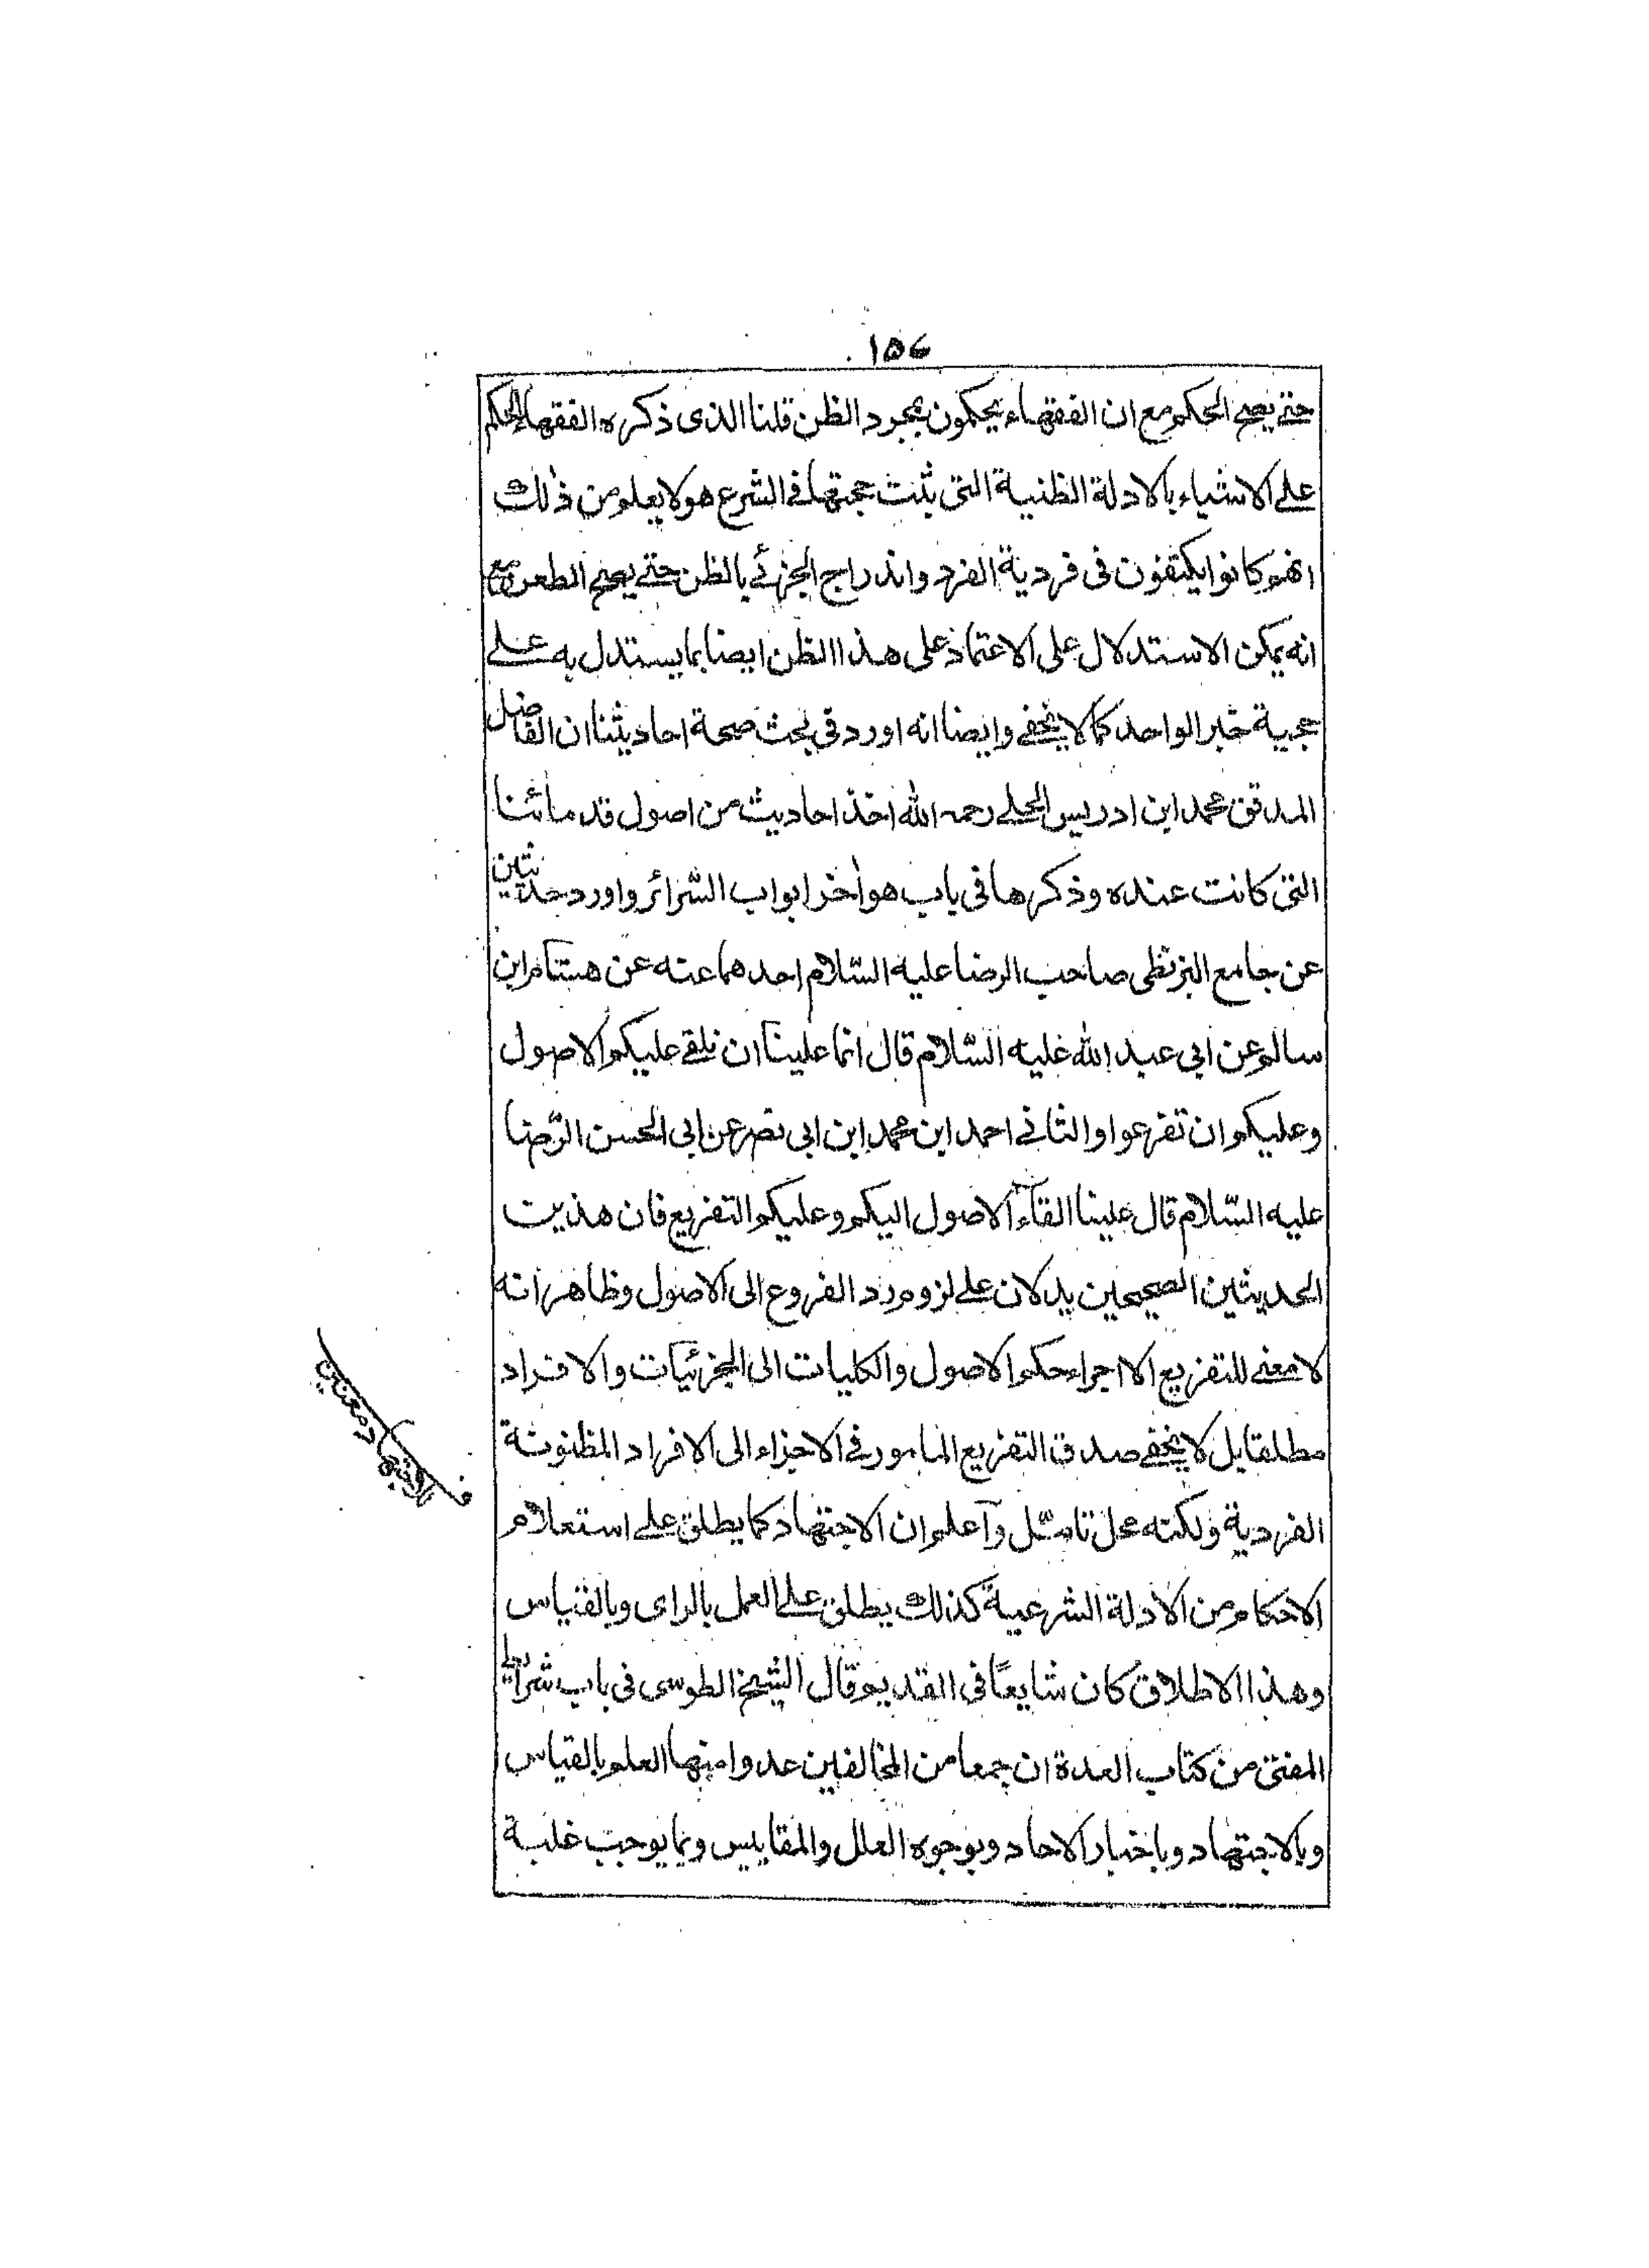 ١٥٦
حتى يصح الحكم مع ان الفقهاء يحكمون بمجرد الظن قلنا الذى ذكره الفقهاء الحكم
على الاشياء بالادلة الظنية التى يثبت حجيتها فى الشرع هو لا يعلم من ذلك
انهم كانوا يكتفون فى فردية الفرد واندراج الجزئى بالظن حتى يصح الطعن مع
انه يمكن الاستدلال على الاعتماد على هذا الظن ايضا بما يستدل به على
حجية خبر الواحد كما لا يخفى وايضا انه اورد فى بحث صحة احاديثنا ان الفاضل
المدقق محمد ابن ادريس الحلى رحمه الله اخذ احاديث من اصول قدمائنا
التى كانت عنده وذكرها فى باب هو اخر ابواب السّرائر واورد حديثين
عن جامع البزنطى صاحب الرضا عليه السّلام احدهما عنه عن هشام ابن
سالم عن ابى عبد الله عليه السّلام قال انما علينا ان نلقى عليكم الاصول
وعليكم ان تفرعوا والثانى احمد ابن محمد ابن ابى نصر عن ابى الحسن الرّضا
عليه السّلام قال علينا القاء الاصول اليكم وعليكم التفريع فان هذين
الحديثين الصحيحين يدلان على لزوم رد الفروع الى الاصول وظاهر انه
لا معنى للتفريع الا اجراء حكم الاصول والكليات الى الجزئيات والافراد
مطلقا بل لا يخفى صدق التفريع المامور فى الاجزاء الى الافراد المظنونة
الفردية ولكنه محل تامّل وآعلم ان الاجتهاد كما يطلق على استعلام
الاحكام من الادلة الشرعية كذلك يطلق على العمل بالراى وبالقياس
وهذا الاطلاق كان شايعًا فى القديم قال الشيخ الطوسى فى باب شرايط
المفتى من كتاب العدة ان جمعا من المخالفين عدوا منها العلم بالقياس
وبالاجتهاد وباخبار الاحاد وبوجوه العلل والمقاييس وبما يوجب غلبة